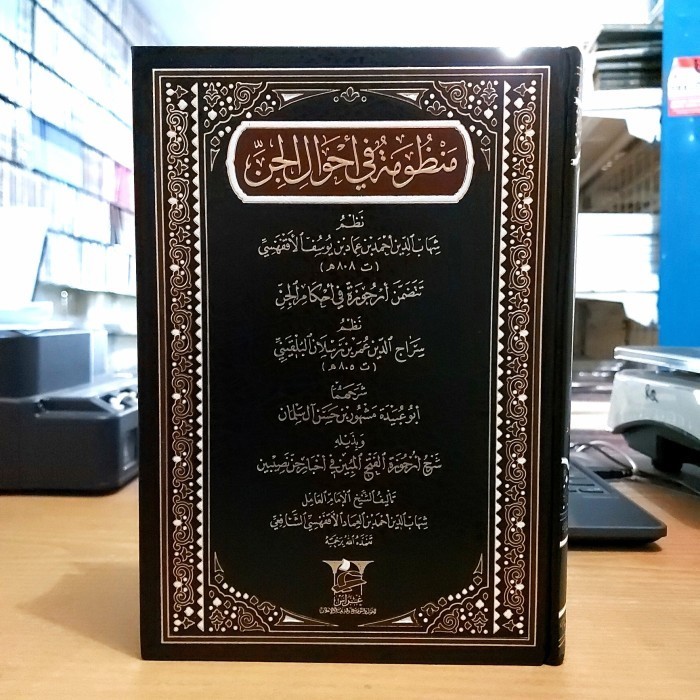 مَنْظُومَةٌ فِي أَحْوَالِ الْجِنِّ
نَظْمُ
شِهَابِ الدِّينِ أَحْمَدَ بْنِ عِمَادِ بْنِ يُوسُفَ الأَقْفَهْسِيِّ
(ت ٨٠٨ هـ)
تَتَضَمَّنُ أُرْجُوزَةً فِي أَحْكَامِ الْجِنِّ
نَظْمُ
سِرَاجِ الدِّينِ عُمَرَ بْنِ رَسْلَانَ الْبُلْقِينِيِّ
(ت ٨٠٥ هـ)
شَرَحَهُمَا
أَبُو عُبَيْدَةَ مَشْهُورُ بْنُ حَسَنٍ آلُ سَلْمَانَ
وَبِذَيْلِهِ
شَرْحُ أُرْجُوزَةِ الْفَتْحِ الْمُبِينِ فِي أَخْبَارِ جِنِّ نَصِيبِينَ
تَأْلِيفُ الشَّيْخِ الإِمَامِ الْعَامِلِ
شِهَابِ الدِّينِ أَحْمَدَ بْنِ الْعِمَادِ الأَقْفَهْسِيِّ الشَّافِعِيِّ
تَغَمَّدَهُ اللهُ بِرَحْمَتِهِ
غِرَاس